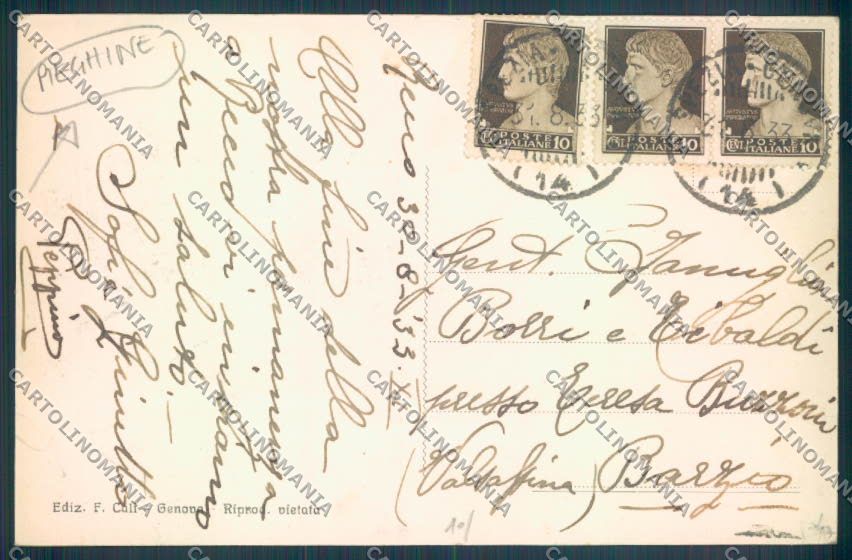 PIEGHINE
Recco 30-8-33. XI
Alla fine della
nostra permanenza a
Recco vi inviamo
un saluto.-
Sofia Ginetta
Peppino
POSTE
ITALIANE
10
POSTE
ITALIANE
10
POSTE
ITALIANE
10
31.8.33
14
14
Gent. Famiglia
Borri e Tibaldi
presso Teresa Buzzoni
(Valsassina) Barzio
Ediz. F. Cali - Genova - Riprod. vietata
10/
CARTOLINOMANIA